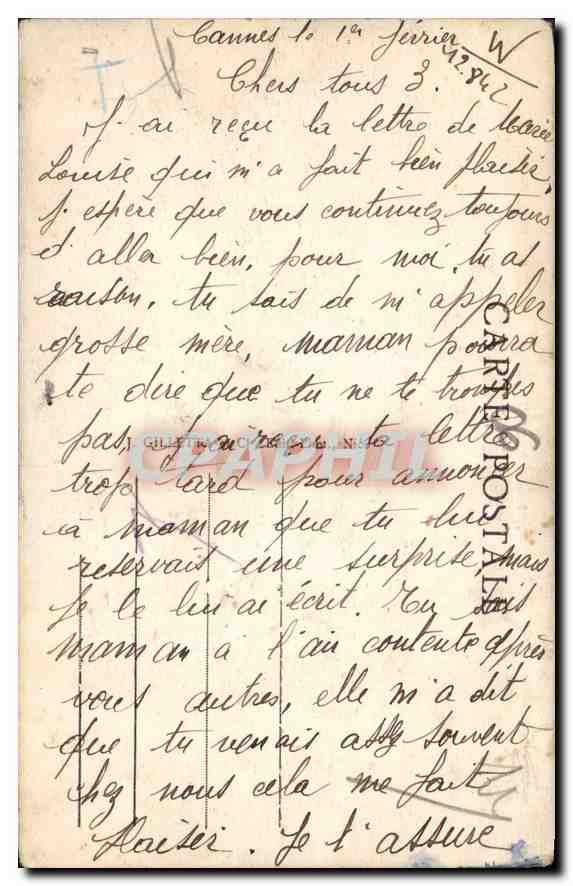 Cannes le 1er février
12.842
Chers tous 3.
J'ai reçu la lettre de Marie
Louise qui m'a fait bien plaisir,
j'espère que vous continuez toujours
d'aller bien, pour moi, tu as
raison, tu sais de m'appeler
grosse mère, maman pourra
te dire que tu ne te trompes
pas, j'ai reçu ta lettre
trop tard pour annoncer
à maman que tu lui
reservais une surprise, mais
je le lui ai écrit. Tu sais
maman a l'air contente après
vous autres, elle m'a dit
que tu venais assez souvent
chez nous cela me fait
plaisir. Je t'assure
CARTE POSTALE
J. GILLETTA
CPAPHIL